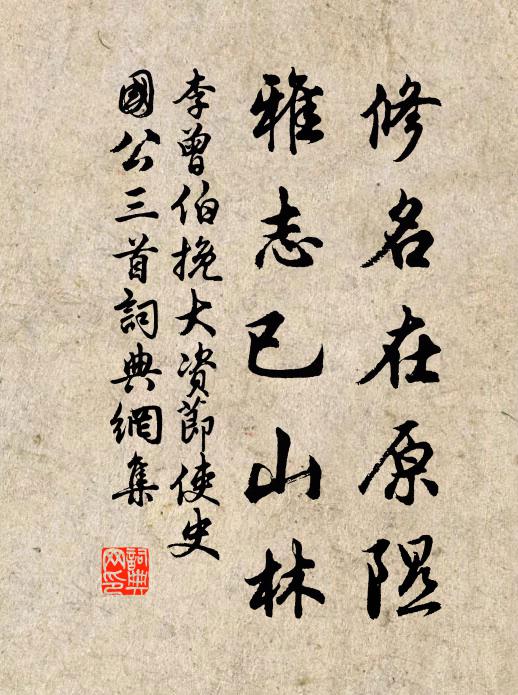 修名在原隰
雅志已山林
李曾伯挽大资節使史
國公三首詞典網集
詞典网印